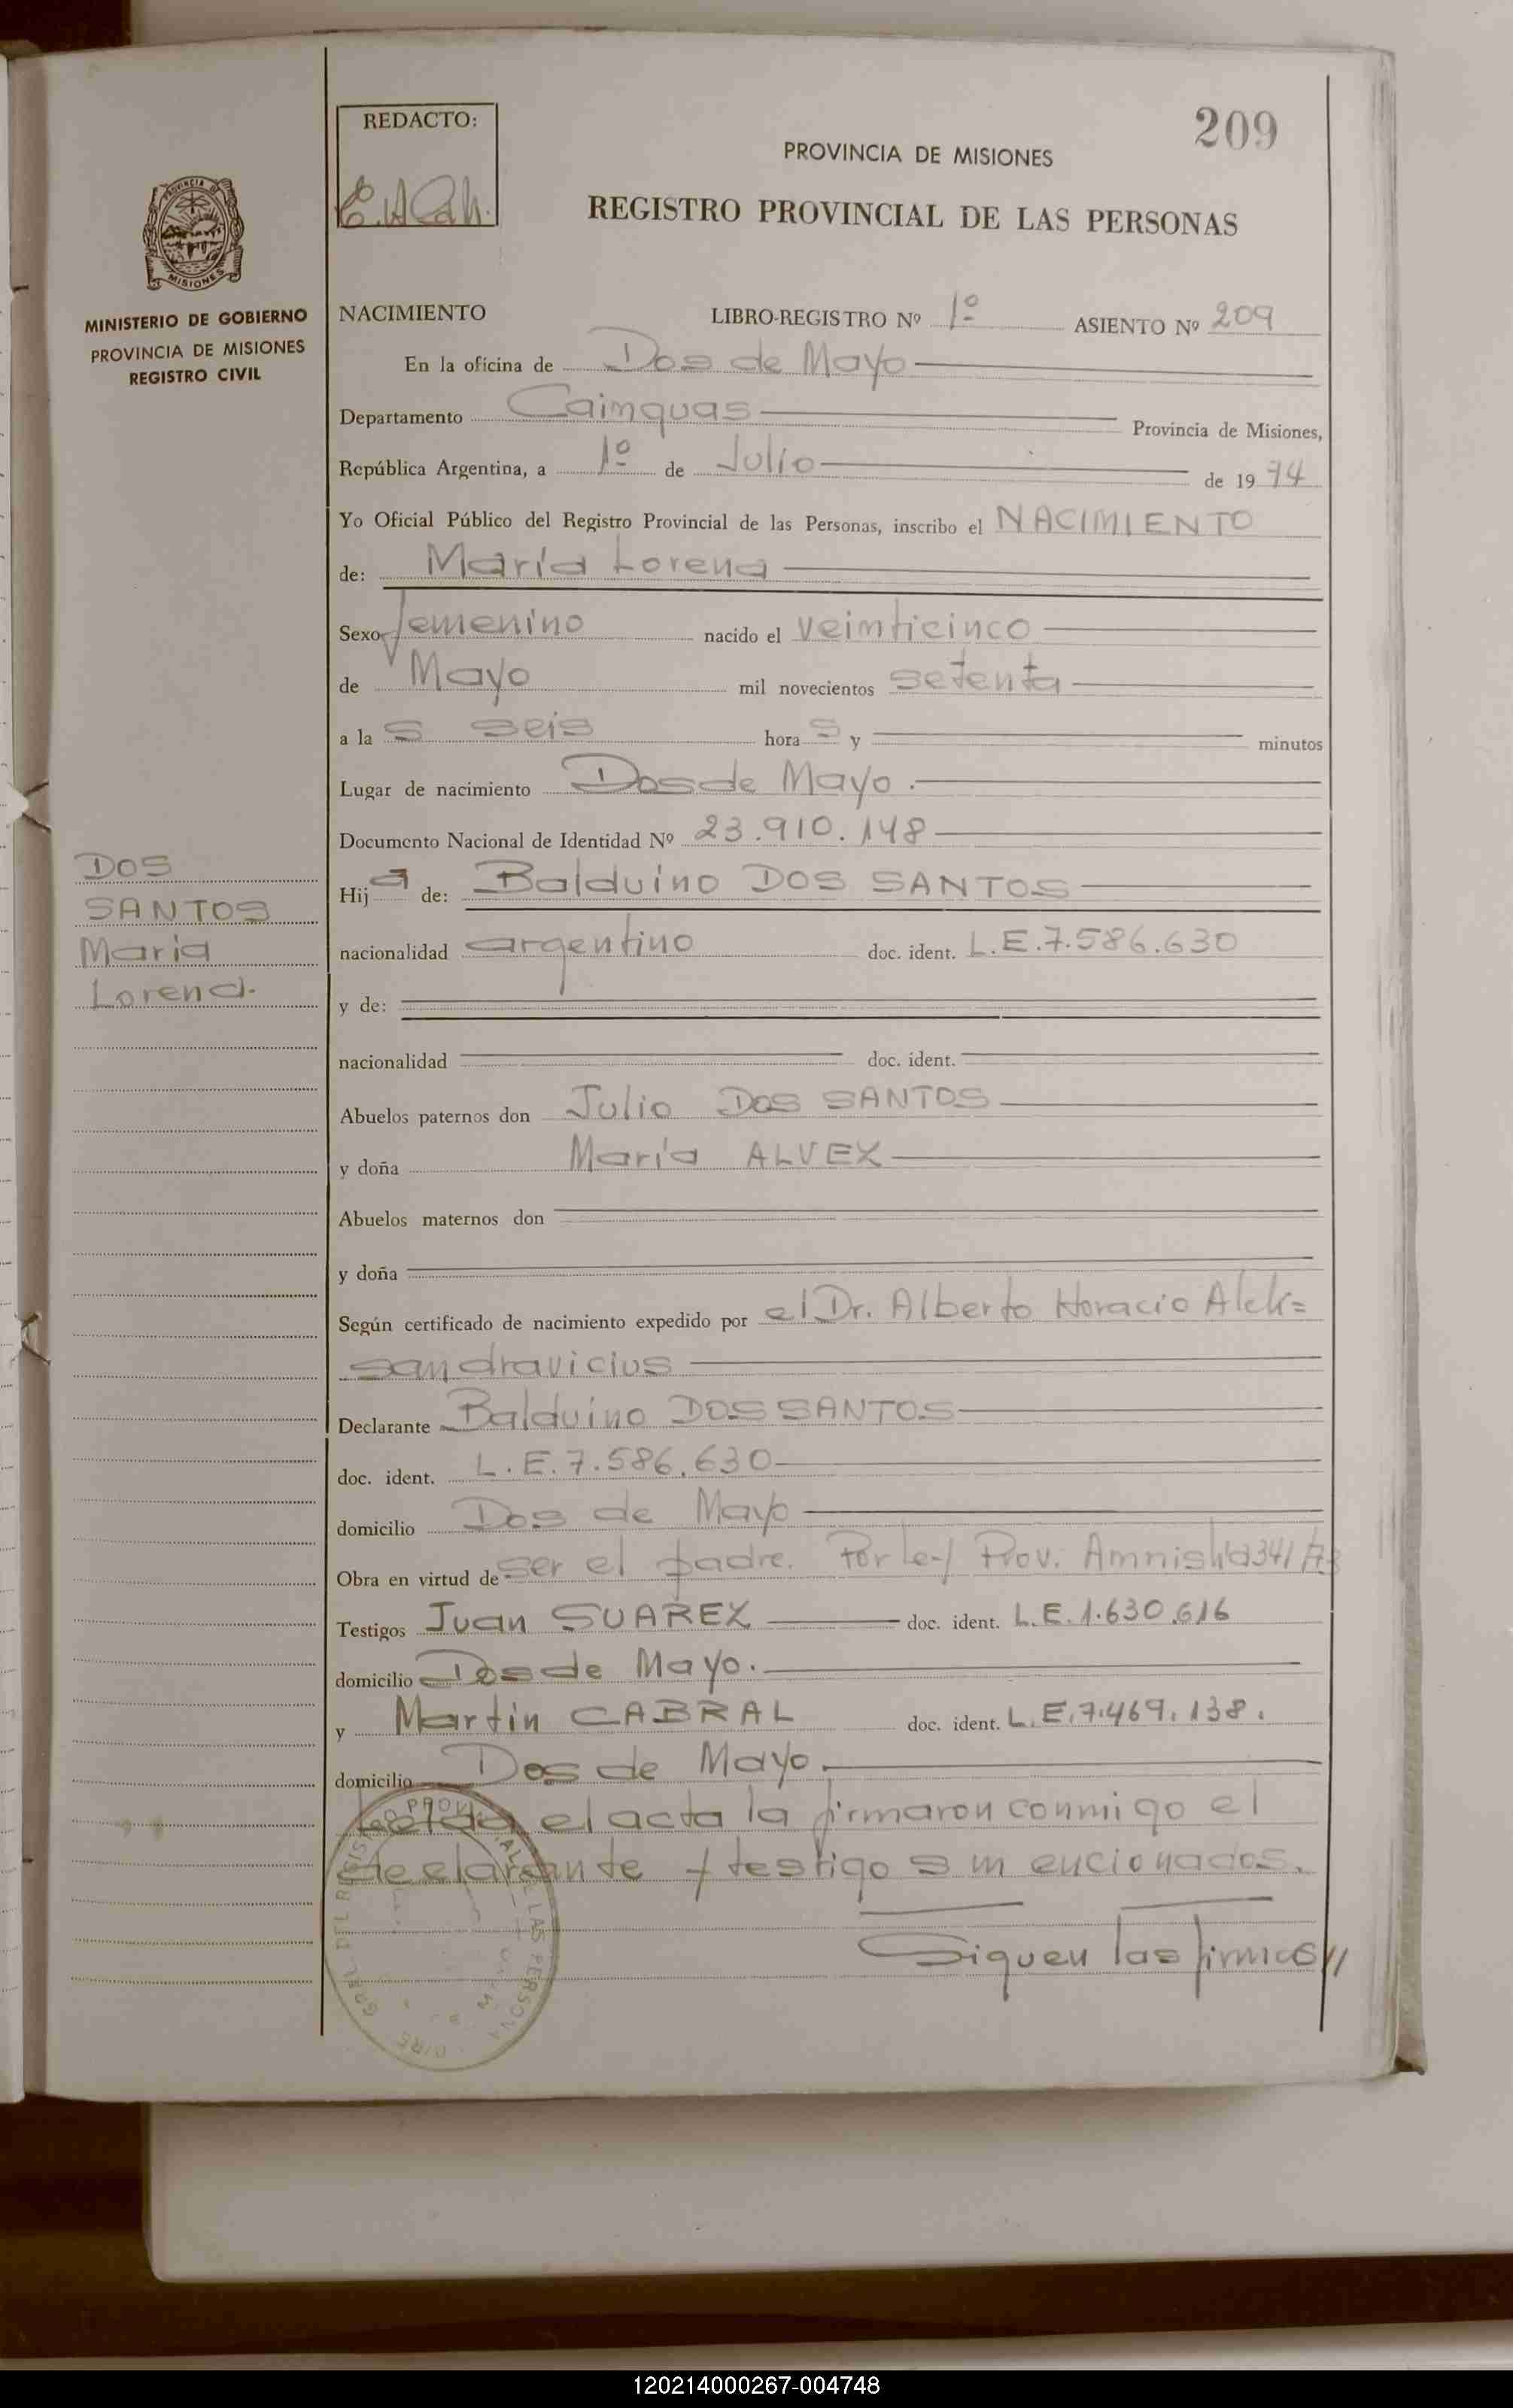 209
REDACTO:
PROVINCIA DE MISIONES
REGISTRO PROVINCIAL DE LAS PERSONAS
PROVINCIA DE
MISIONES
MINISTERIO DE GOBIERNO
PROVINCIA DE MISIONES
REGISTRO CIVIL
NACIMIENTO LIBRO-REGISTRO Nº 1º ASIENTO Nº 209
En la oficina de Dos de Mayo
Departamento Cainguas Provincia de Misiones,
República Argentina, a 1º de Julio de 1974
Yo Oficial Público del Registro Provincial de las Personas, inscribo el NACIMIENTO
de: María Lorena
Sexo femenino nacido el veinticinco
de Mayo mil novecientos setenta
a la s seis hora s y minutos
Lugar de nacimiento Dos de Mayo.
Documento Nacional de Identidad Nº 23.910.148
DOS
SANTOS
Maria
Lorena.
Hij a de: Balduino DOS SANTOS
nacionalidad argentino doc. ident. L.E.7.586.630
y de:
nacionalidad doc. ident.
Abuelos paternos don Julio DOS SANTOS
y doña María ALVEZ
Abuelos maternos don
y doña
Según certificado de nacimiento expedido por el Dr. Alberto Horacio Alek=
sandravicius
Declarante Balduino DOS SANTOS
doc. ident. L.E.7.586.630
domicilio Dos de Mayo
Obra en virtud de ser el padre. Por Ley Prov. Amnistía 341/73
Testigos Juan SUAREZ doc. ident. L.E.1.630.616
domicilio Dos de Mayo.
y Martin CABRAL doc. ident. L.E.7.469.138.
domicilio Dos de Mayo.
Leída el acta la firmaron conmigo el
declarante y testigos mencionados.
Siguen las firmas//
120214000267-004748